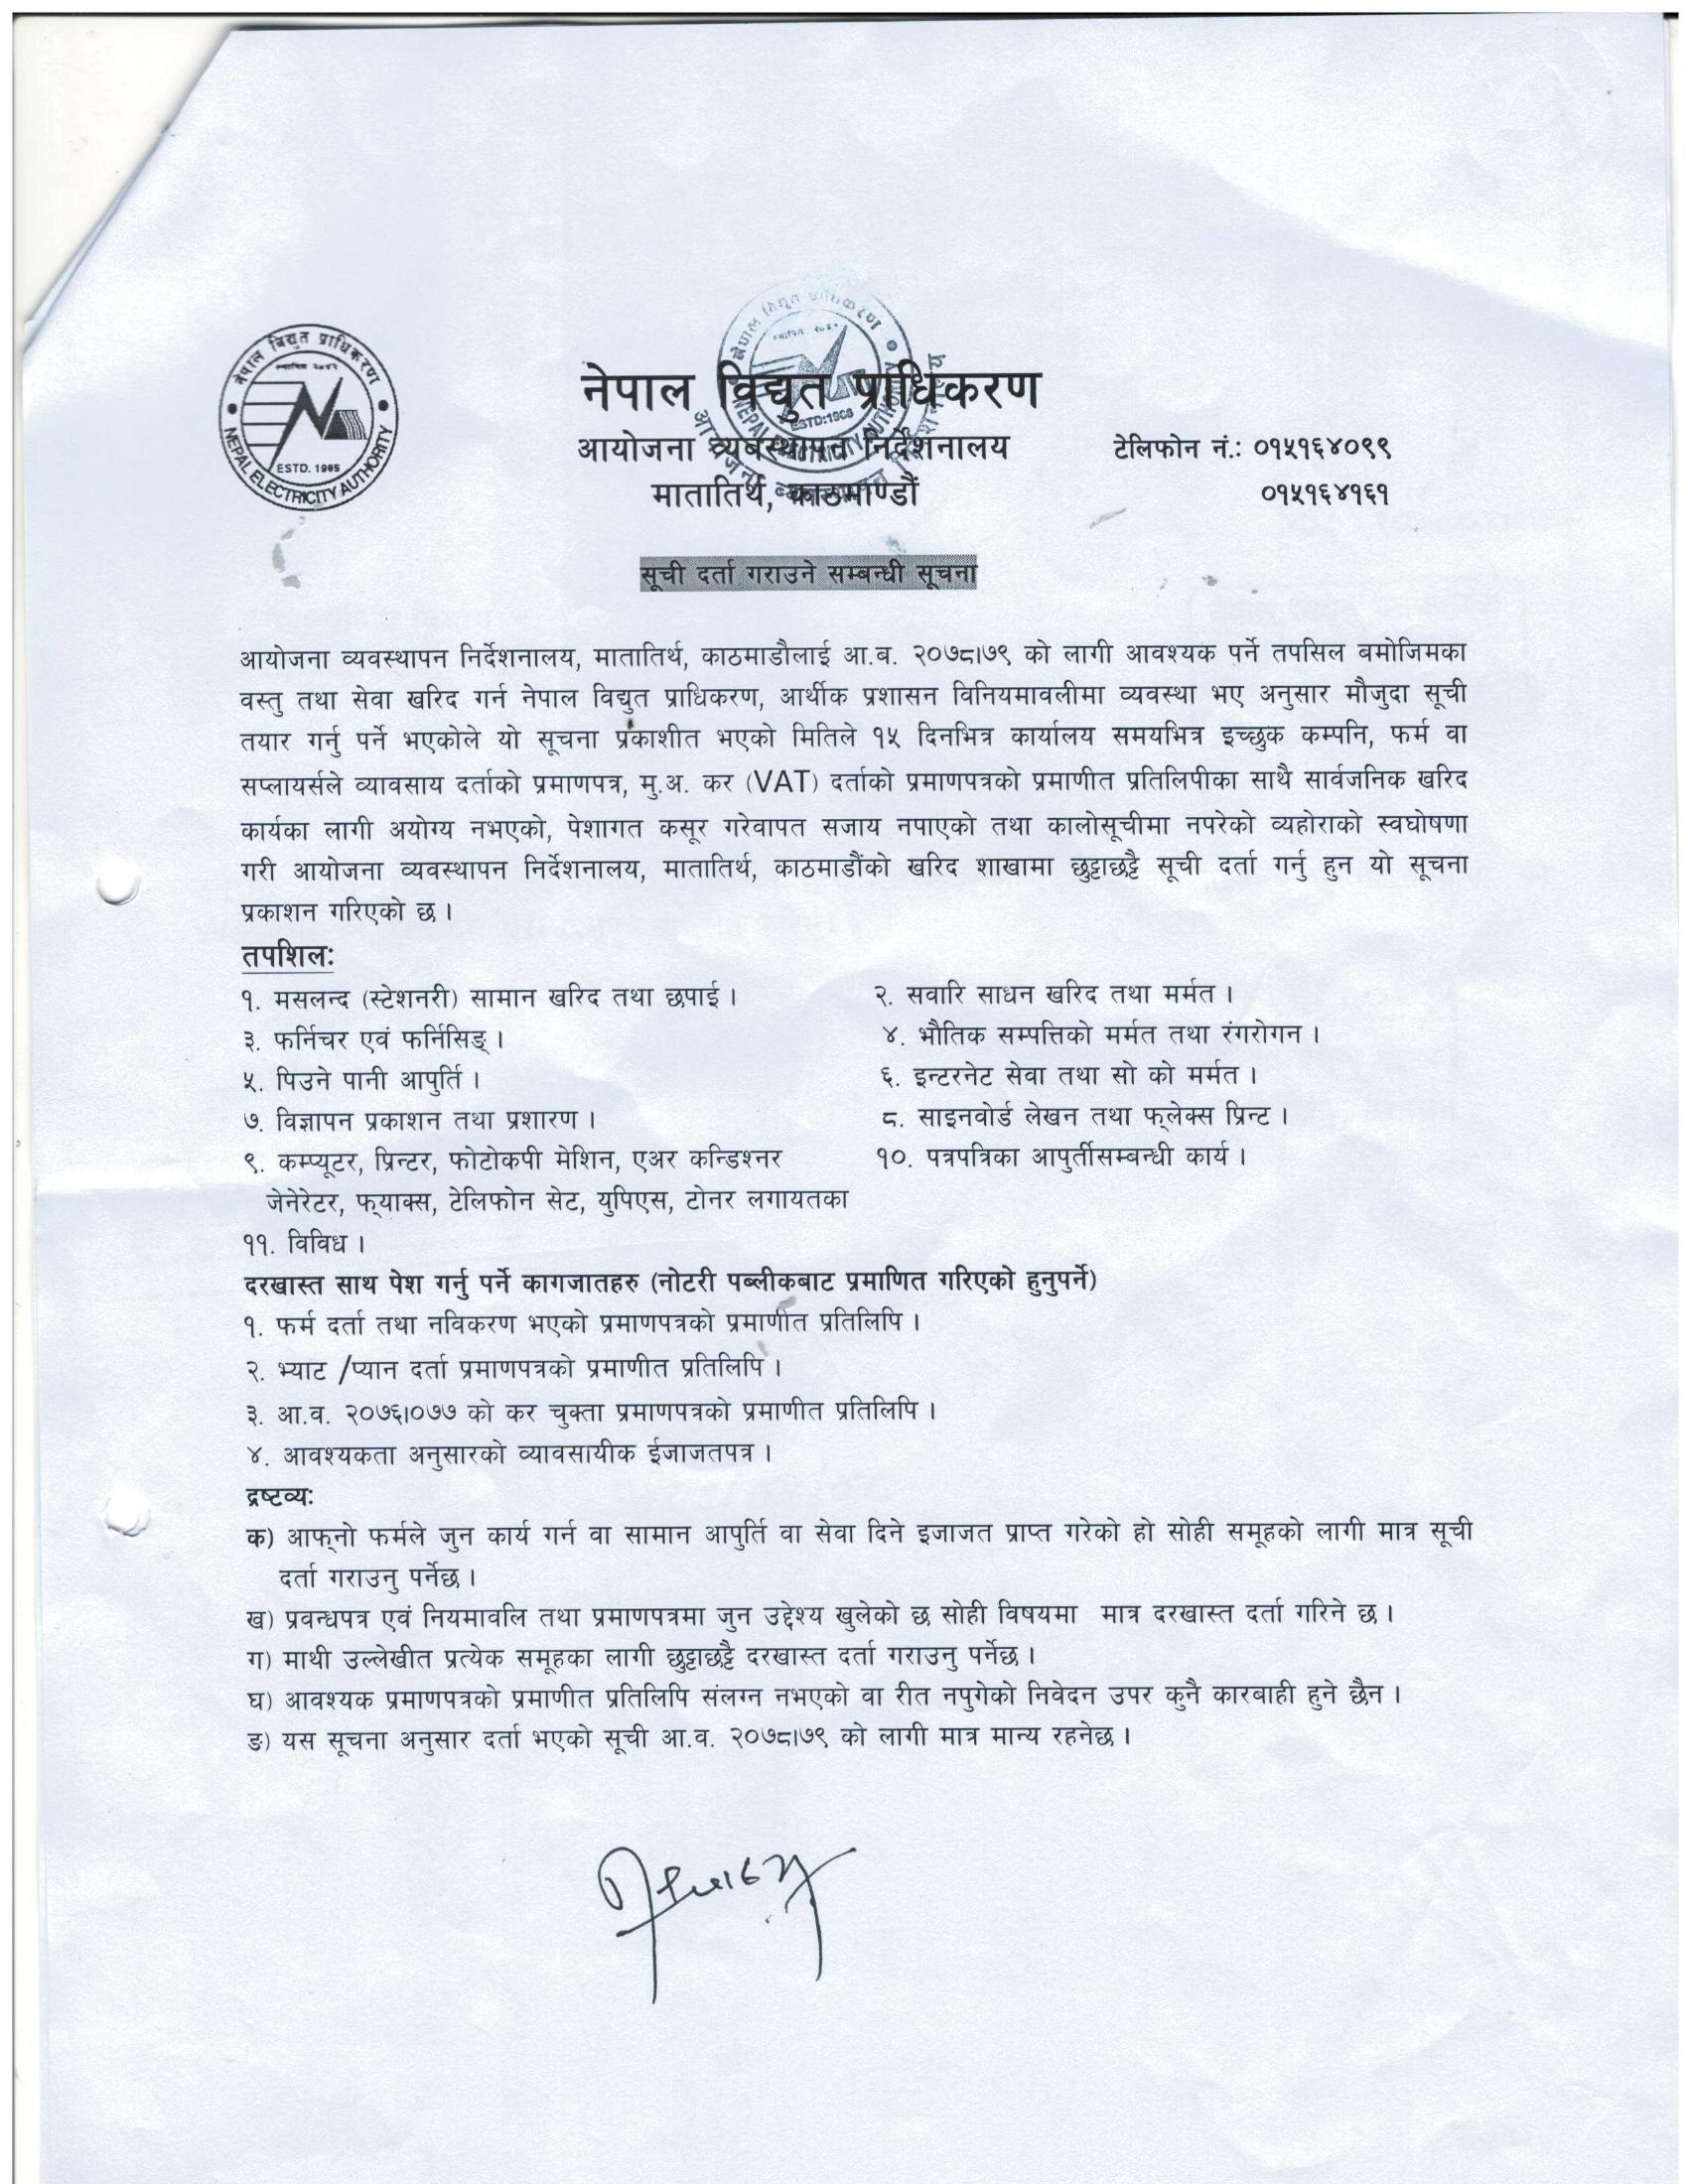 नेपाल विद्युत प्राधिकरण
स्थापित २०४२
ESTD. 1985
NEPAL ELECTRICITY AUTHORITY
नेपाल विद्युत प्राधिकरण
आयोजना व्यवस्थापन निर्देशनालय
टेलिफोन नं.: ०१५१६४०९९
मातातिर्थ, काठमाण्डौं
०१५१६४१६१
सूची दर्ता गराउने सम्बन्धी सूचना
आयोजना व्यवस्थापन निर्देशनालय, मातातिर्थ, काठमाडौलाई आ.ब. २०७८।७९ को लागी आवश्यक पर्ने तपसिल बमोजिमका
वस्तु तथा सेवा खरिद गर्न नेपाल विद्युत प्राधिकरण, आर्थीक प्रशासन विनियमावलीमा व्यवस्था भए अनुसार मौजुदा सूची
तयार गर्नु पर्ने भएकोले यो सूचना प्रकाशीत भएको मितिले १५ दिनभित्र कार्यालय समयभित्र इच्छुक कम्पनि, फर्म वा
सप्लायर्सले व्यावसाय दर्ताको प्रमाणपत्र, मु.अ. कर (VAT) दर्ताको प्रमाणपत्रको प्रमाणीत प्रतिलिपीका साथै सार्वजनिक खरिद
कार्यका लागी अयोग्य नभएको, पेशागत कसूर गरेवापत सजाय नपाएको तथा कालोसूचीमा नपरेको व्यहोराको स्वघोषणा
गरी आयोजना व्यवस्थापन निर्देशनालय, मातातिर्थ, काठमाडौंको खरिद शाखामा छुट्टाछट्टै सूची दर्ता गर्नु हुन यो सूचना
प्रकाशन गरिएको छ ।
तपशिलः
१. मसलन्द (स्टेशनरी) सामान खरिद तथा छपाई ।
२. सवारि साधन खरिद तथा मर्मत ।
३. फर्निचर एवं फर्निसिङ् ।
४. भौतिक सम्पत्तिको मर्मत तथा रंगरोगन ।
५. पिउने पानी आपुर्ति ।
६. इन्टरनेट सेवा तथा सो को मर्मत ।
७. विज्ञापन प्रकाशन तथा प्रशारण ।
८. साइनवोर्ड लेखन तथा फ्लेक्स प्रिन्ट ।
९. कम्प्यूटर, प्रिन्टर, फोटोकपी मेशिन, एअर कन्डिश्नर
१०. पत्रपत्रिका आपुर्तीसम्बन्धी कार्य ।
जेनेरेटर, फ्याक्स, टेलिफोन सेट, युपिएस, टोनर लगायतका
११. विविध ।
दरखास्त साथ पेश गर्नु पर्ने कागजातहरु (नोटरी पब्लीकबाट प्रमाणित गरिएको हुनुपर्ने)
१. फर्म दर्ता तथा नविकरण भएको प्रमाणपत्रको प्रमाणीत प्रतिलिपि ।
२. भ्याट /प्यान दर्ता प्रमाणपत्रको प्रमाणीत प्रतिलिपि ।
३. आ.व. २०७६।०७७ को कर चुक्ता प्रमाणपत्रको प्रमाणीत प्रतिलिपि ।
४. आवश्यकता अनुसारको व्यावसायीक ईजाजतपत्र ।
द्रष्टव्यः
क) आफ्नो फर्मले जुन कार्य गर्न वा सामान आपुर्ति वा सेवा दिने इजाजत प्राप्त गरेको हो सोही समूहको लागी मात्र सूची
दर्ता गराउनु पर्नेछ ।
ख) प्रवन्धपत्र एवं नियमावलि तथा प्रमाणपत्रमा जुन उद्देश्य खुलेको छ सोही विषयमा मात्र दरखास्त दर्ता गरिने छ ।
ग) माथी उल्लेखीत प्रत्येक समूहका लागी छुट्टाछट्टै दरखास्त दर्ता गराउनु पर्नेछ ।
घ) आवश्यक प्रमाणपत्रको प्रमाणीत प्रतिलिपि संलग्न नभएको वा रीत नपुगेको निवेदन उपर कुनै कारबाही हुने छैन ।
ङ) यस सूचना अनुसार दर्ता भएको सूची आ.व. २०७८।७९ को लागी मात्र मान्य रहनेछ ।